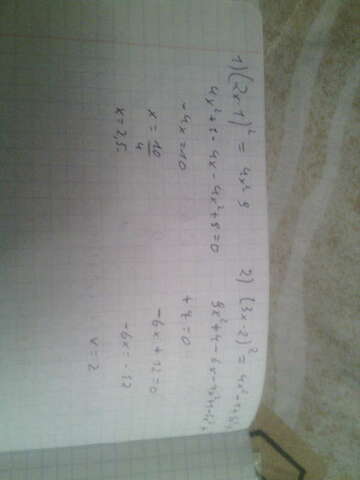 1) (2x-1)² = 4x² 9
4x² + 1 - 4x - 4x² + 9 = 0
- 4x = -10
x = 10/4
x = 2,5.
2) (3x-2)² =
9x² + 4 -
+ 7 = 0
-6x + 12 = 0
-6x = -12
x = 2